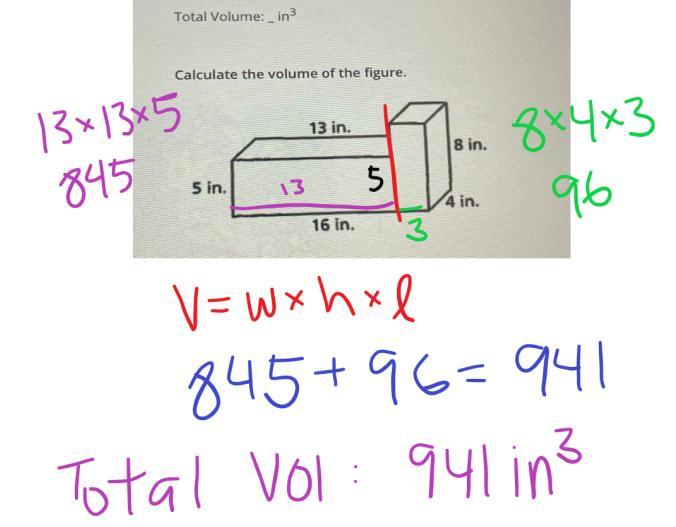 Total Volume: _ in³
Calculate the volume of the figure.
13×13×5
845
13 in.
8 in.
8×4×3
96
5 in.
13
5
4 in.
16 in.
3
V=w×h×l
845+96=941
Total Vol: 941 in³